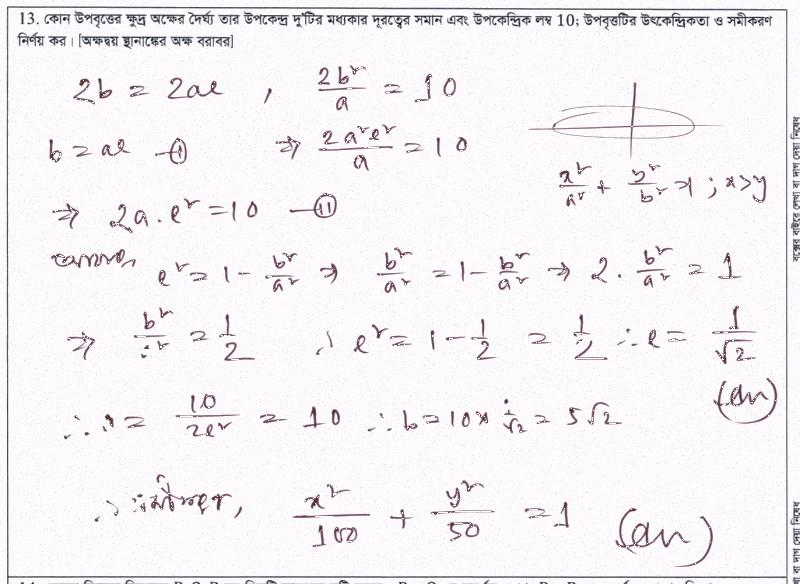 13. কোন উপবৃত্তের ক্ষুদ্র অক্ষের দৈর্ঘ্য তার উপকেন্দ্র দু'টির মধ্যকার দূরত্বের সমান এবং উপকেন্দ্রিক লম্ব 10; উপবৃত্তটির উৎকেন্দ্রিকতা ও সমীকরণ
নির্ণয় কর। [অক্ষদ্বয় স্থানাঙ্কের অক্ষ বরাবর]
2b = 2ae , 2b²/a = 10
b = ae —(i) ⇒ 2a²e²/a = 10
x²/a² + y²/b² = 1 ; x>y
⇒ 2a.e² = 10 —(ii)
e² = 1 - b²/a² ⇒ b²/a² = 1 - b²/a² ⇒ 2. b²/a² = 1
⇒ b²/a² = 1/2 ∴ e² = 1 - 1/2 = 1/2 ∴ e = 1/√2
(Ans)
∴ a = 10/2e² = 10 ∴ b = 10 × 1/√2 = 5√2
∴ সমীকরণ, x²/100 + y²/50 = 1 (Ans)